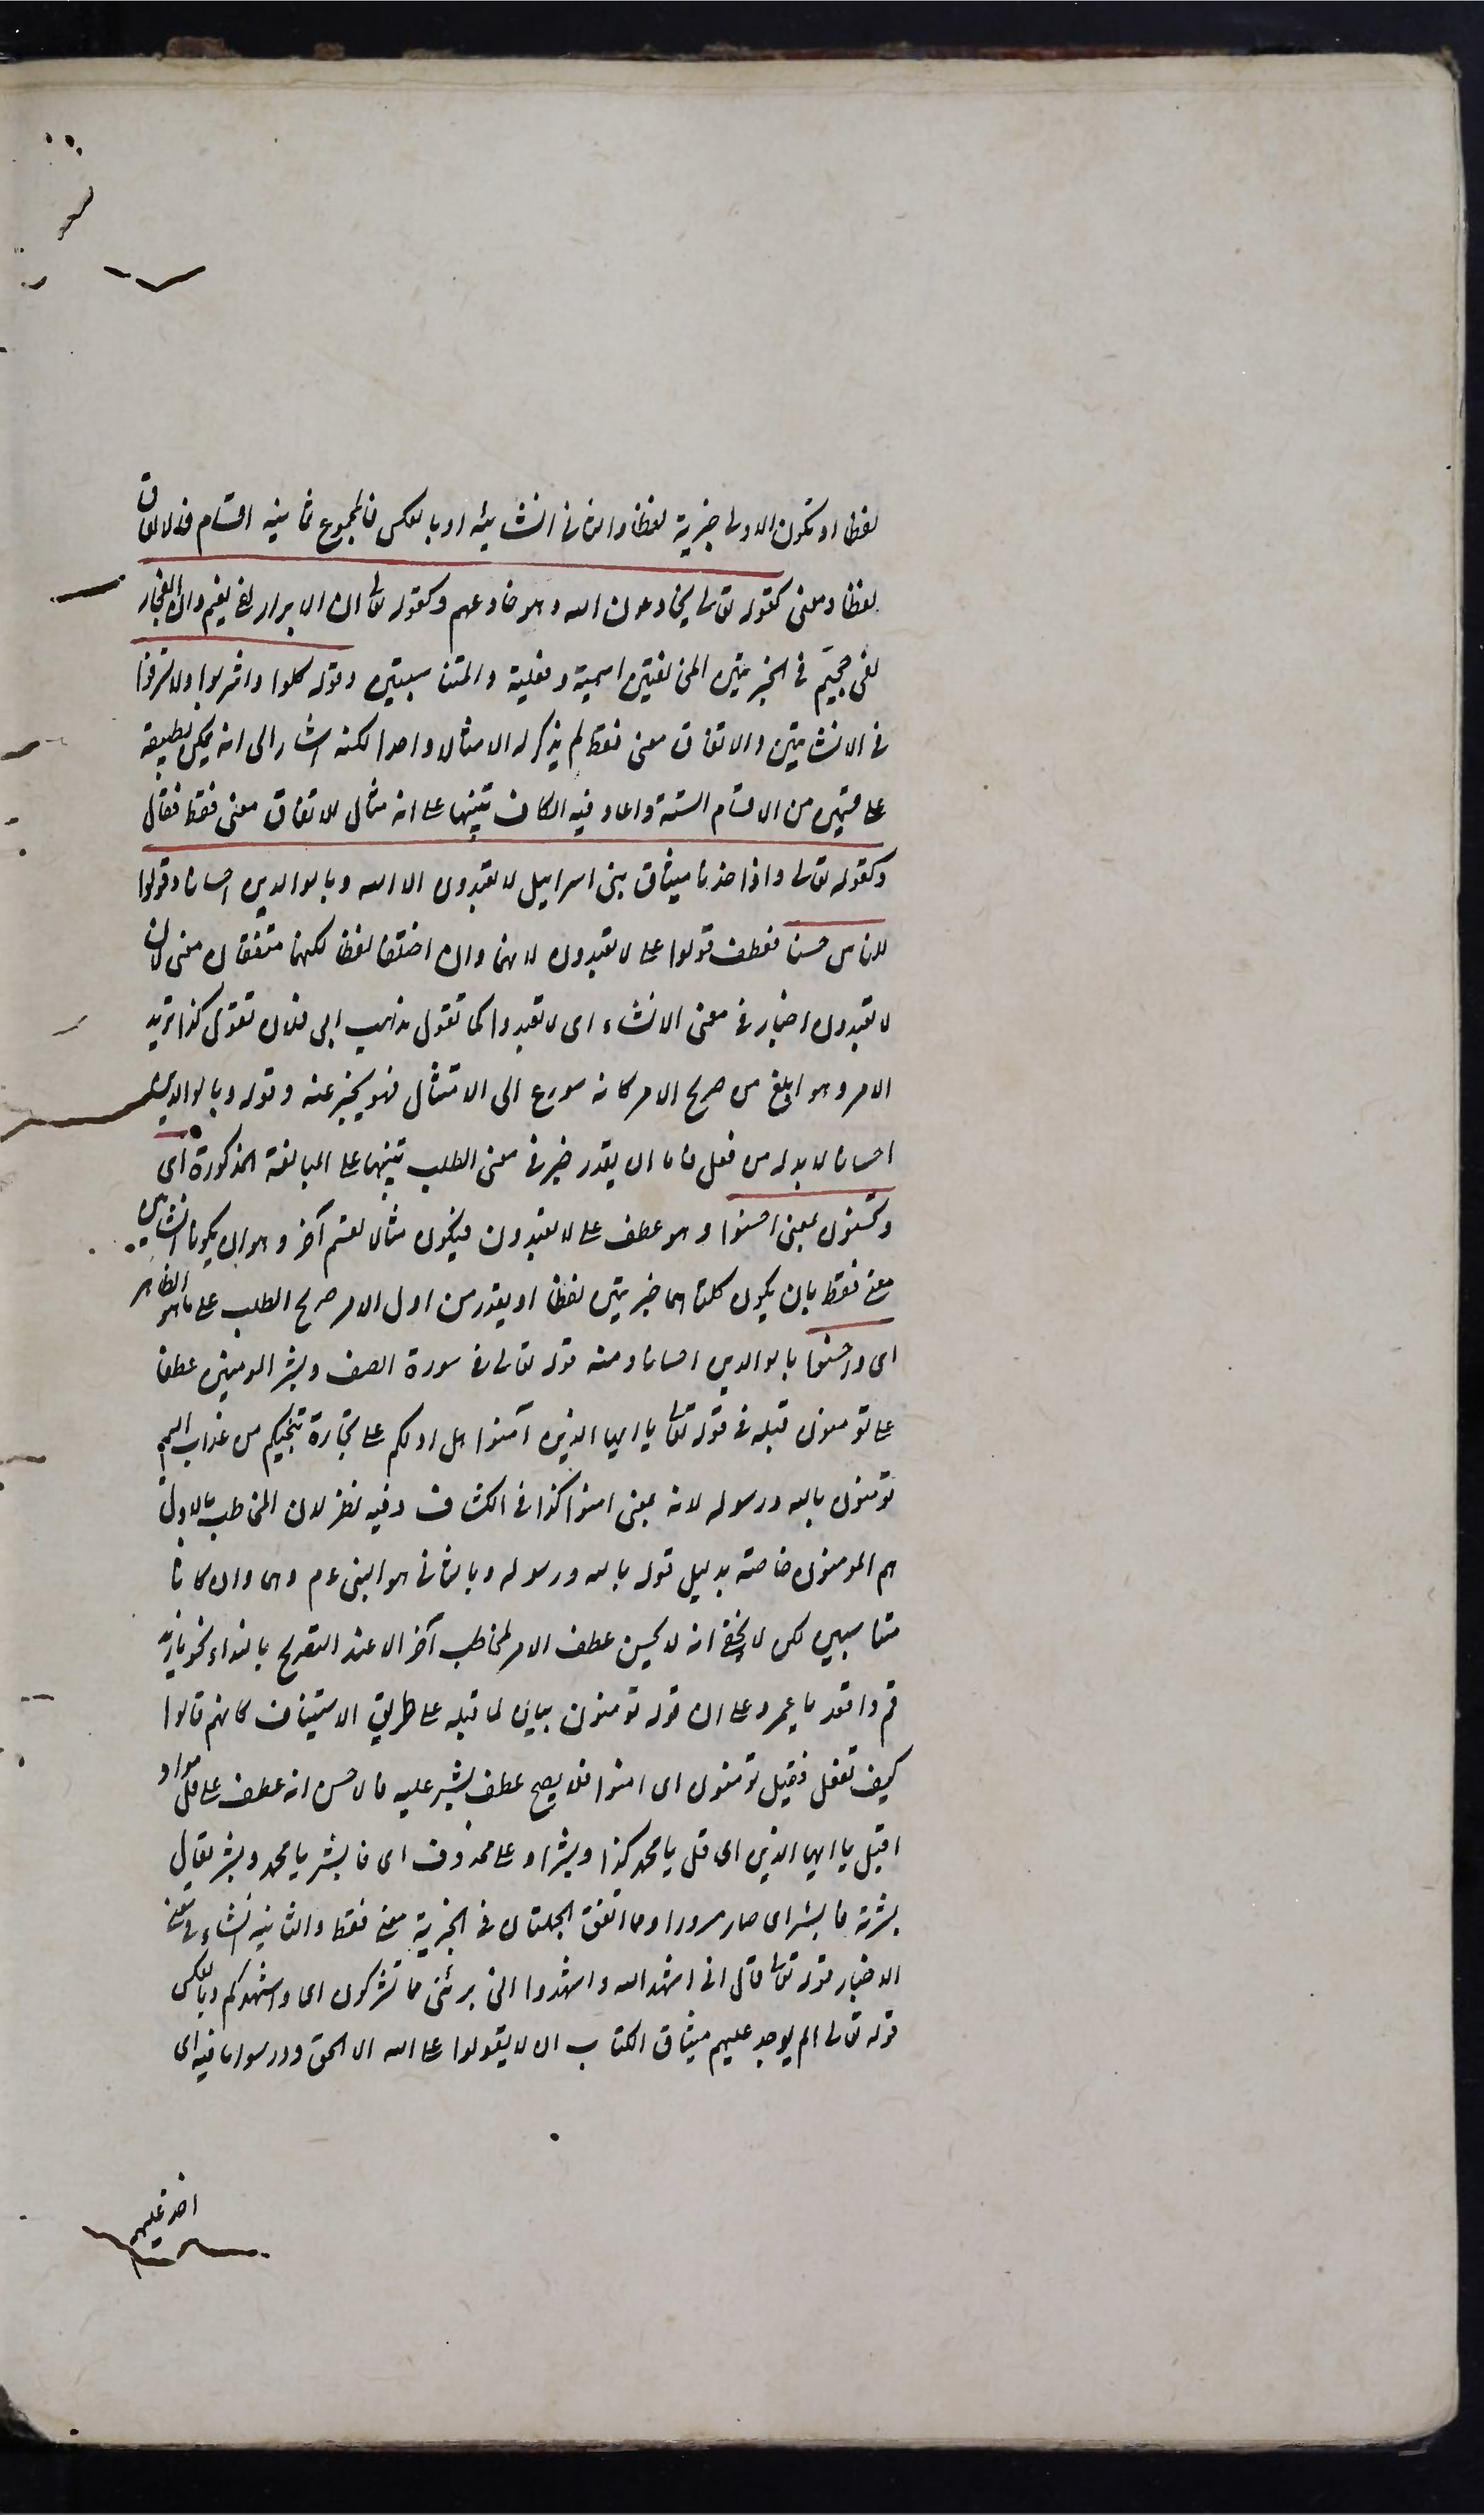 لفظا او تكون الاولى خبرية لفظا والثانى انشائية او بالعكس فالمجموع ثمانية اقسام فالاتفاق
لفظا ومعنى كقوله تعالى يخادعون الله وهو خادعهم وكقوله تعالى ان الابرار لفى نعيم وان الفجار
لفى جحيم فى الخبريتين المختلفتين اسمية وفعلية والمتناسبتين وقوله كلوا واشربوا ولا تسرفوا
فى الانشائيتين والاتفاق معنى فقط لم يذكر له الا مثالا واحدا لكنه اشار الى انه يمكن تطبيقه
على قسمين من الاقسام الستة واعاد فيه الكاف تنبيها على انه مثال للاتفاق معنى فقط فقال
وكقوله تعالى واذ اخذنا ميثاق بنى اسرائيل لا تعبدون الا الله وبالوالدين احسانا وقولوا
للناس حسنا فعطف قولوا على لا تعبدون لانهما وان اختلفا لفظا لكنهما متفقان معنى لان
لا تعبدون اخبار فى معنى الانشاء اى لا تعبدوا كما تقول تذهب الى فلان تقول كذا تريد
الامر وهو ابلغ من صريح الامر كانه سورع الى الامتثال فهو يخبر عنه وقوله وبالوالدين
احسانا لا بد له من فعل فاما ان يقدر خبر فى معنى الطلب تنبيها على المبالغة المذكورة اى
وتحسنون بمعنى احسنوا وهو عطف على لا تعبدون فيكون مثالا لقسم آخر وهو ان يكونا انشائيتين
معنى فقط بان يكون كلتاهما خبريتين لفظا او يقدر من اول الامر صريح الطلب على ما هو الظاهر
اى واحسنوا بالوالدين احسانا ومنه قوله تعالى فى سورة الصف وبشر المومنين عطفا
على تومنون قبله فى قوله تعالى يا ايها الذين آمنوا هل ادلكم على تجارة تنجيكم من عذاب اليم
تومنون بالله ورسوله لانه بمعنى امنوا كذا فى الكشاف وفيه نظر لان المخاطب بالاول
هم المومنون خاصة بدليل قوله بالله ورسوله وبالثانى هو النبى عم وهما وان كانا
متناسبين لكن لا يخفى انه لا يحسن عطف الامر لمخاطب آخر الا عند التصريح بالنداء نحو يا زيد
قم واقعد يا عمرو على ان قوله تومنون بيان لما قبله على طريق الاستيناف كانهم قالوا
كيف نفعل فقيل تومنون اى امنوا فلا يصح عطف بشر عليه فالاحسن انه عطف على قل مرادا
قبل يا ايها الذين اى قل يا محمد كذا وبشر او على محذوف اى فابشر يا محمد وبشر يقال
بشرته فابشر اى صار مسرورا ومما اتفق الجملتان فى الخبرية معنى فقط والثانية انشاء فى معنى
الاخبار قوله تعالى قال انى اشهد الله واشهدوا انى برئ مما تشركون اى واشهدكم وبالعكس
قوله تعالى الم يوخذ عليهم ميثاق الكتاب ان لا يقولوا على الله الا الحق ودرسوا ما فيه اى
اخذ عليهم